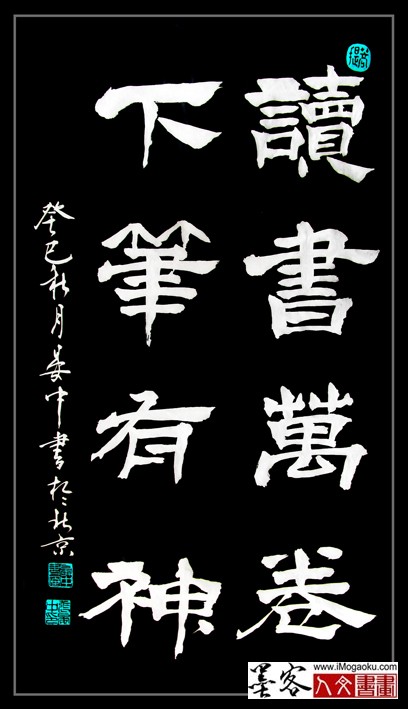 讀書萬卷
下筆有神
癸巳秋月晏中書於北京
墨客
www.iMogaoku.com
人文書畫